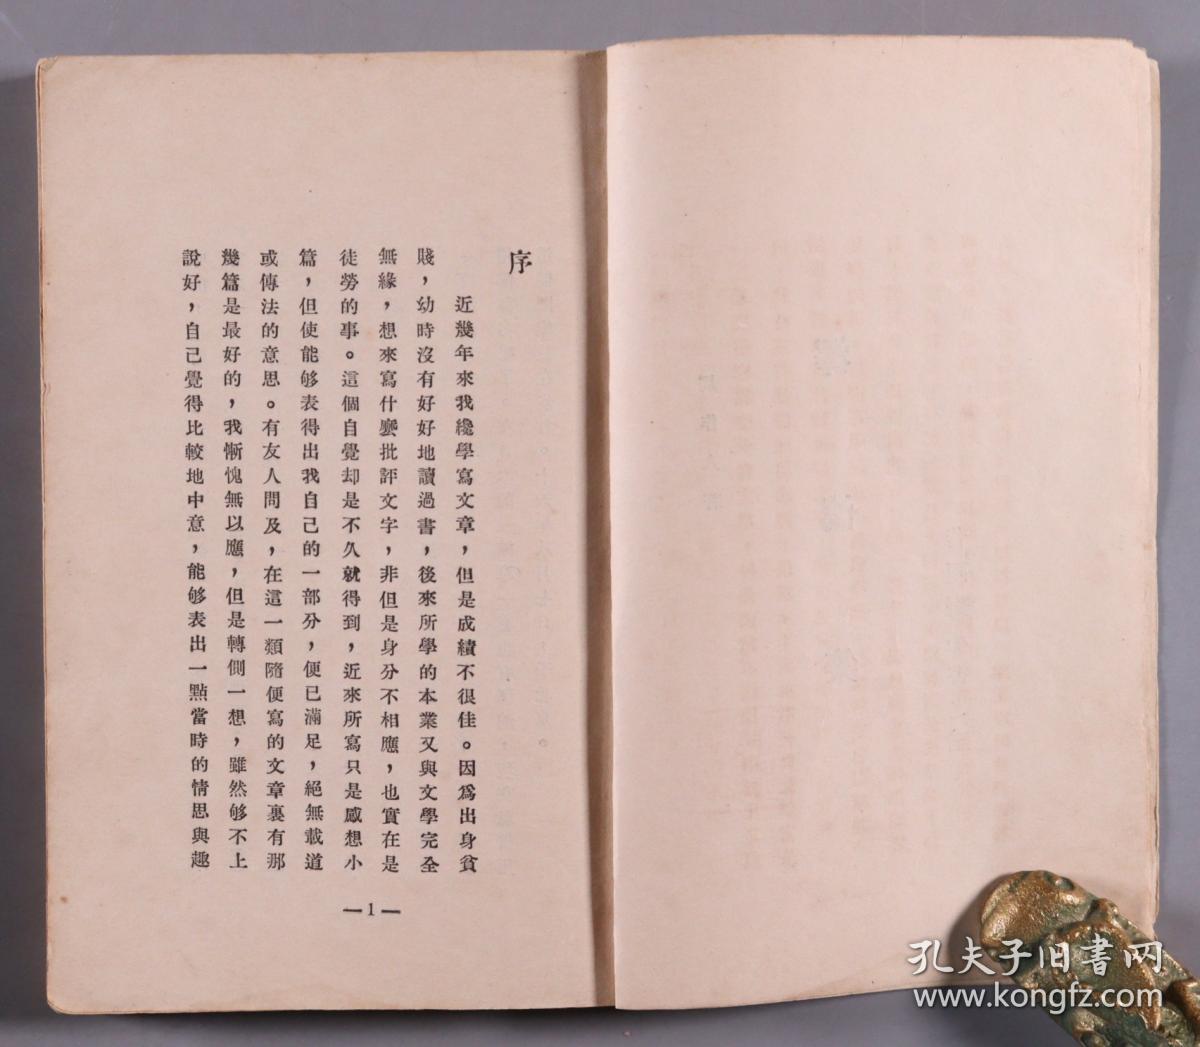 序
近幾年來我纔學寫文章，但是成績不很佳。因爲出身貧
賤，幼時沒有好好地讀過書，後來所學的本業又與文學完全
無緣，想來寫什麼批評文字，非但是身分不相應，也實在是
徒勞的事。這個自覺却是不久就得到，近來所寫只是感想小
篇，但使能够表得出我自己的一部分，便已滿足，絕無載道
或傳法的意思。有友人問及，在這一類隨便寫的文章裏有那
幾篇是最好的，我慚愧無以應，但是轉側一想，雖然够不上
說好，自己覺得比較地中意，能够表出一點當時的情思與趣
—1—
孔夫子旧书网
www.kongfz.com